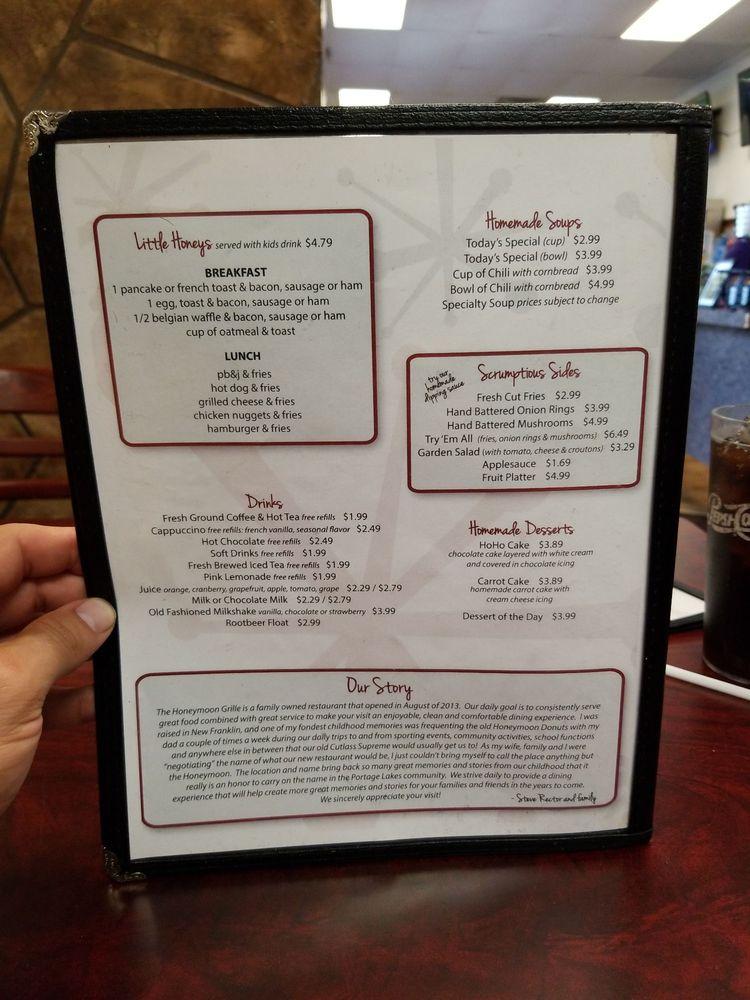 Little Honeys served with kids drink $4.79
BREAKFAST
1 pancake or french toast & bacon, sausage or ham
1 egg, toast & bacon, sausage or ham
1/2 belgian waffle & bacon, sausage or ham
cup of oatmeal & toast
LUNCH
pb&j & fries
hot dog & fries
grilled cheese & fries
chicken nuggets & fries
hamburger & fries
Homemade Soups
Today's Special (cup) $2.99
Today's Special (bowl) $3.99
Cup of Chili with cornbread $3.99
Bowl of Chili with cornbread $4.99
Specialty Soup prices subject to change
try our
homemade
dipping sauce
Scrumptious Sides
Fresh Cut Fries $2.99
Hand Battered Onion Rings $3.99
Hand Battered Mushrooms $4.99
Try 'Em All (fries, onion rings & mushrooms) $6.49
Garden Salad (with tomato, cheese & croutons) $3.29
Applesauce $1.69
Fruit Platter $4.99
Drinks
Fresh Ground Coffee & Hot Tea free refills $1.99
Cappuccino free refills: french vanilla, seasonal flavor $2.49
Hot Chocolate free refills $2.49
Soft Drinks free refills $1.99
Fresh Brewed Iced Tea free refills $1.99
Pink Lemonade free refills $1.99
Juice orange, cranberry, grapefruit, apple, tomato, grape $2.29 / $2.79
Milk or Chocolate Milk $2.29 / $2.79
Old Fashioned Milkshake vanilla, chocolate or strawberry $3.99
Rootbeer Float $2.99
Homemade Desserts
HoHo Cake $3.89
chocolate cake layered with white cream
and covered in chocolate icing
Carrot Cake $3.89
homemade carrot cake with
cream cheese icing
Dessert of the Day $3.99
Our Story
The Honeymoon Grille is a family owned restaurant that opened in August of 2013. Our daily goal is to consistently serve
great food combined with great service to make your visit an enjoyable, clean and comfortable dining experience. I was
raised in New Franklin, and one of my fondest childhood memories was frequenting the old Honeymoon Donuts with my
dad a couple of times a week during our daily trips to and from sporting events, community activities, school functions
and anywhere else in between that our old Cutlass Supreme would usually get us to! As my wife, family and I were
"negotiating" the name of what our new restaurant would be, I just couldn't bring myself to call the place anything but
the Honeymoon. The location and name bring back so many great memories and stories from our childhood that it
really is an honor to carry on the name in the Portage Lakes community. We strive daily to provide a dining
experience that will help create more great memories and stories for your families and friends in the years to come.
We sincerely appreciate your visit!
- Steve Rector and family